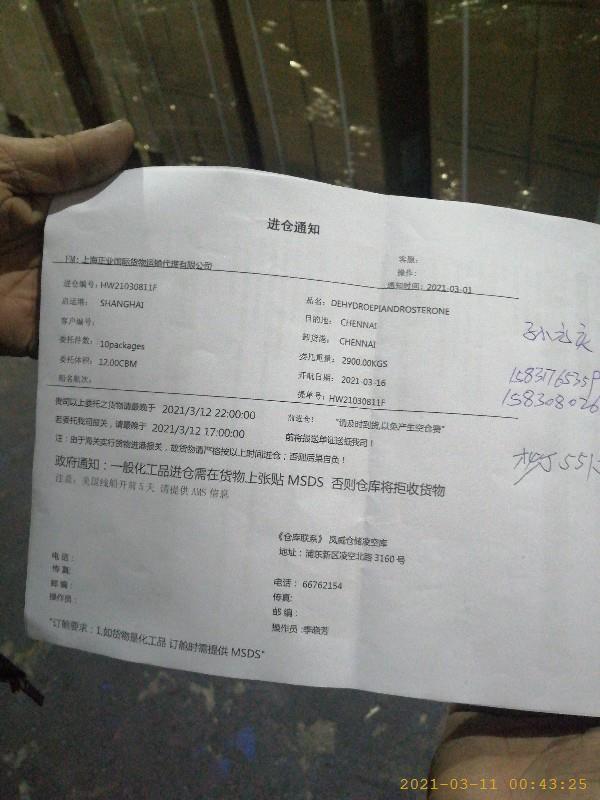 进仓通知
FM: 上海正业国际货物运输代理有限公司
客服：
操作：
通知时间：2021-03-01
进仓编号：HW21030811F
启运港： SHANGHAI
客户编号：
委托件数： 10packages
委托体积： 12.00CBM
船名航次：
品名： DEHYDROEPIANDROSTERONE
目的地： CHENNAI
卸货港： CHENNAI
委托重量： 2900.00KGS
开航日期： 2021-03-16
提单号： HW21030811F
贵司以上委托之货物请最晚于 2021/3/12 22:00:00 前进仓！ "请及时到货,以免产生空仓费"
若委托我司报关，请最晚于 2021/3/12 17:00:00 前将报关单证送抵我司！
注：由于海关实行货物进港报关，故货物请严格按以上时间进仓；否则后果自负！
政府通知：一般化工品进仓需在货物上张贴 MSDS 否则仓库将拒收货物
注意：美国线船开前 5 天 请提供 AMS 信息
《仓库联系》 凤威仓储凌空库
地址：浦东新区凌空北路 3160 号
电话：
传真：
邮编：
操作员：
电话： 66762154
传真：
邮编：
操作员：季晓芳
"订舱要求：1.如货物是化工品 订舱时需提供 MSDS"
158308026
2021-03-11 00:43:25